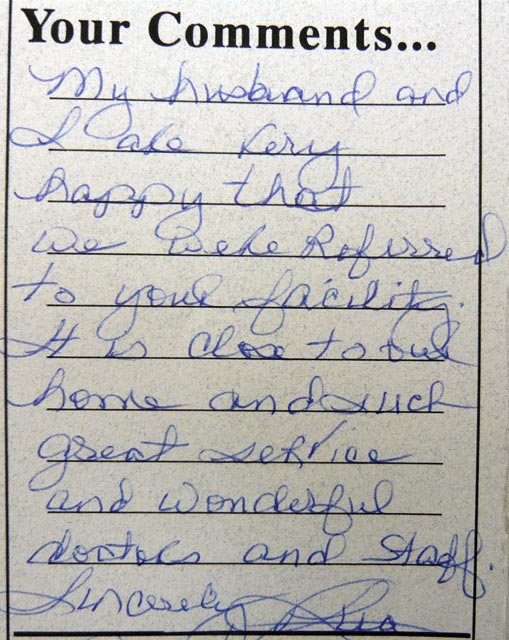 Your Comments...
My husband and
I are very
happy that
we were Referred
to your facility.
It is close to our
home and such
great service
and wonderful
doctors and staff.
Sincerely